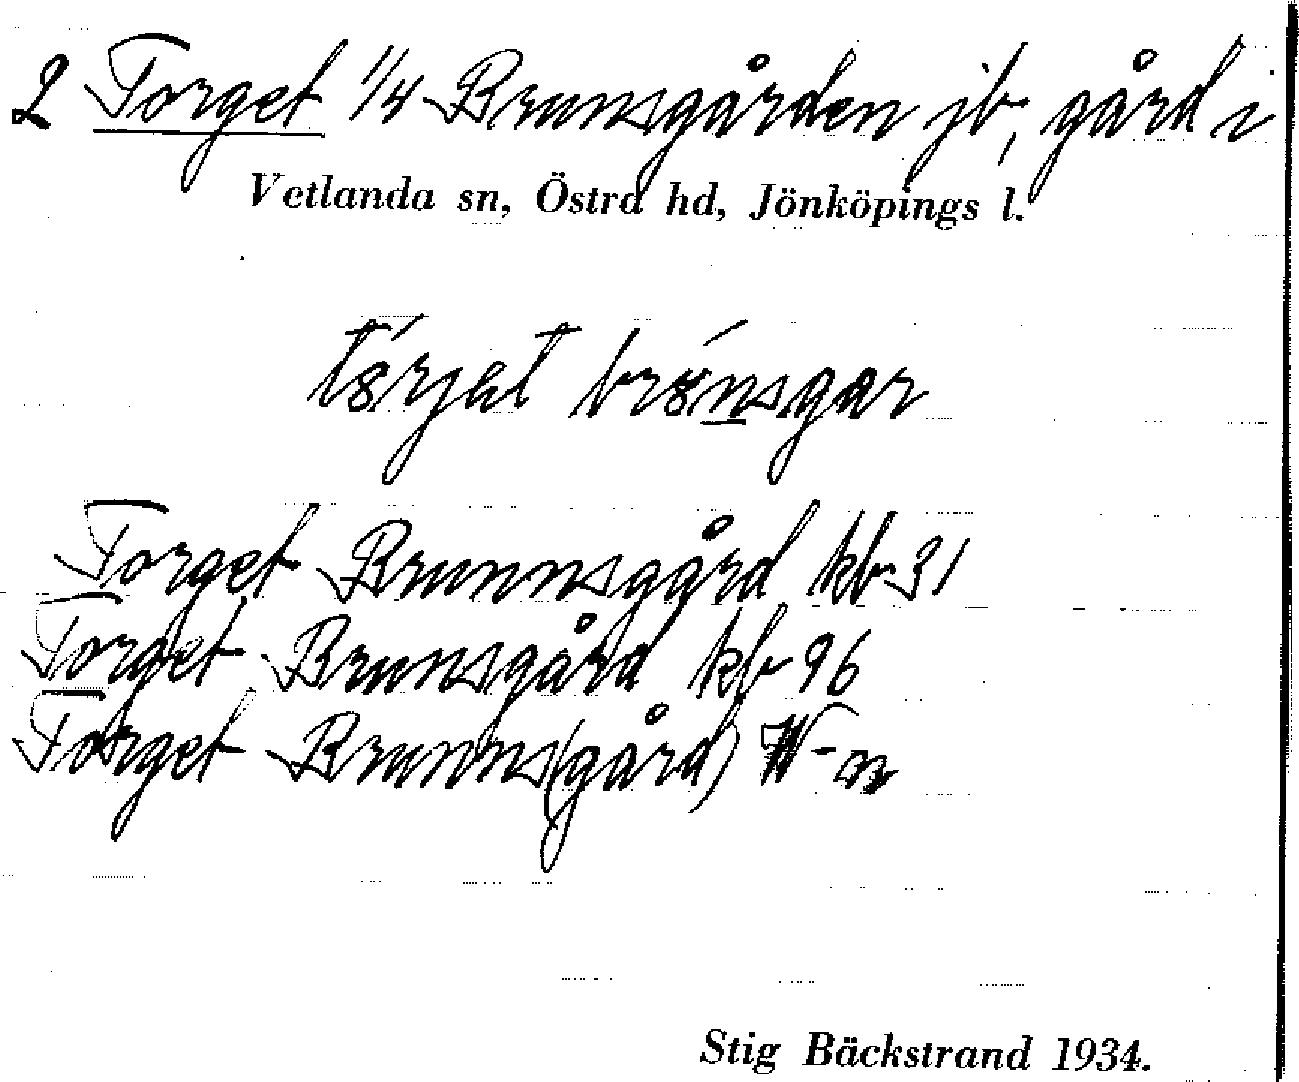 2 Torget 1/4 Brunsgården jb, gård i
Vetlanda sn, Östra hd, Jönköpings l.
tɤ́rjet brɤ́nsgar
Torget Brunnsgård kb 31
Torget Brunsgård kb 96
Torget Brunns(gård)
Stig Bäckstrand 1934.